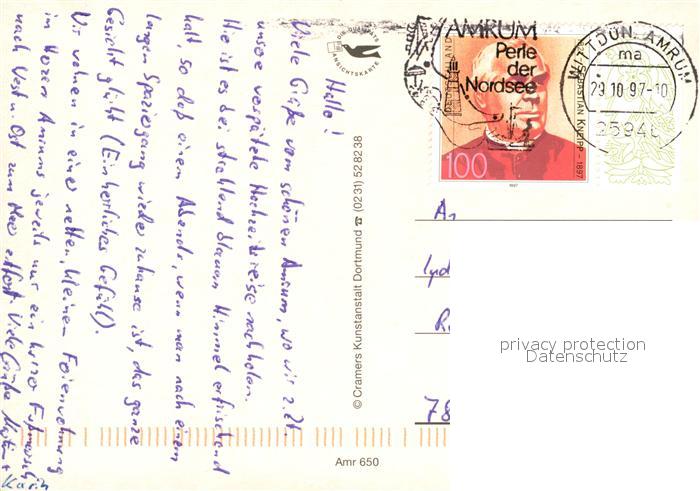 Hallo!
Viele Grüße vom schönen Amrum, wo wir z.Zt.
unsere verspätete Hochzeitsreise nachholen.
Hie ist es bei strahlend blauem Himmel erfrischend
kalt, so daß einem Abends, wenn man nach einem
langen Spaziergang wieder zuhause ist, das ganze
Gesicht glüht (Ein herrliches Gefühl).
Wir wohnen in einer netten, kleinen Ferienwohnung
im Herzen Amrums jeweils nur ein Fußmarsch
nach West u. Ost zum Meer entfernt. Viele Grüße Martin +
Karin
DIE QUALITÄTS
ANSICHTSKARTE
© Cramers Kunstanstalt Dortmund ☎ (0231) 528238
Amr 650
AMRUM
Perle
der
Nordsee
DEUTSCHLAND
SEBASTIAN KNEIPP - 1897
100
1997
WITTDÜN, AMRUM
ma
29.10.97-10
25946
Lyd
78
privacy protection
Datenschutz